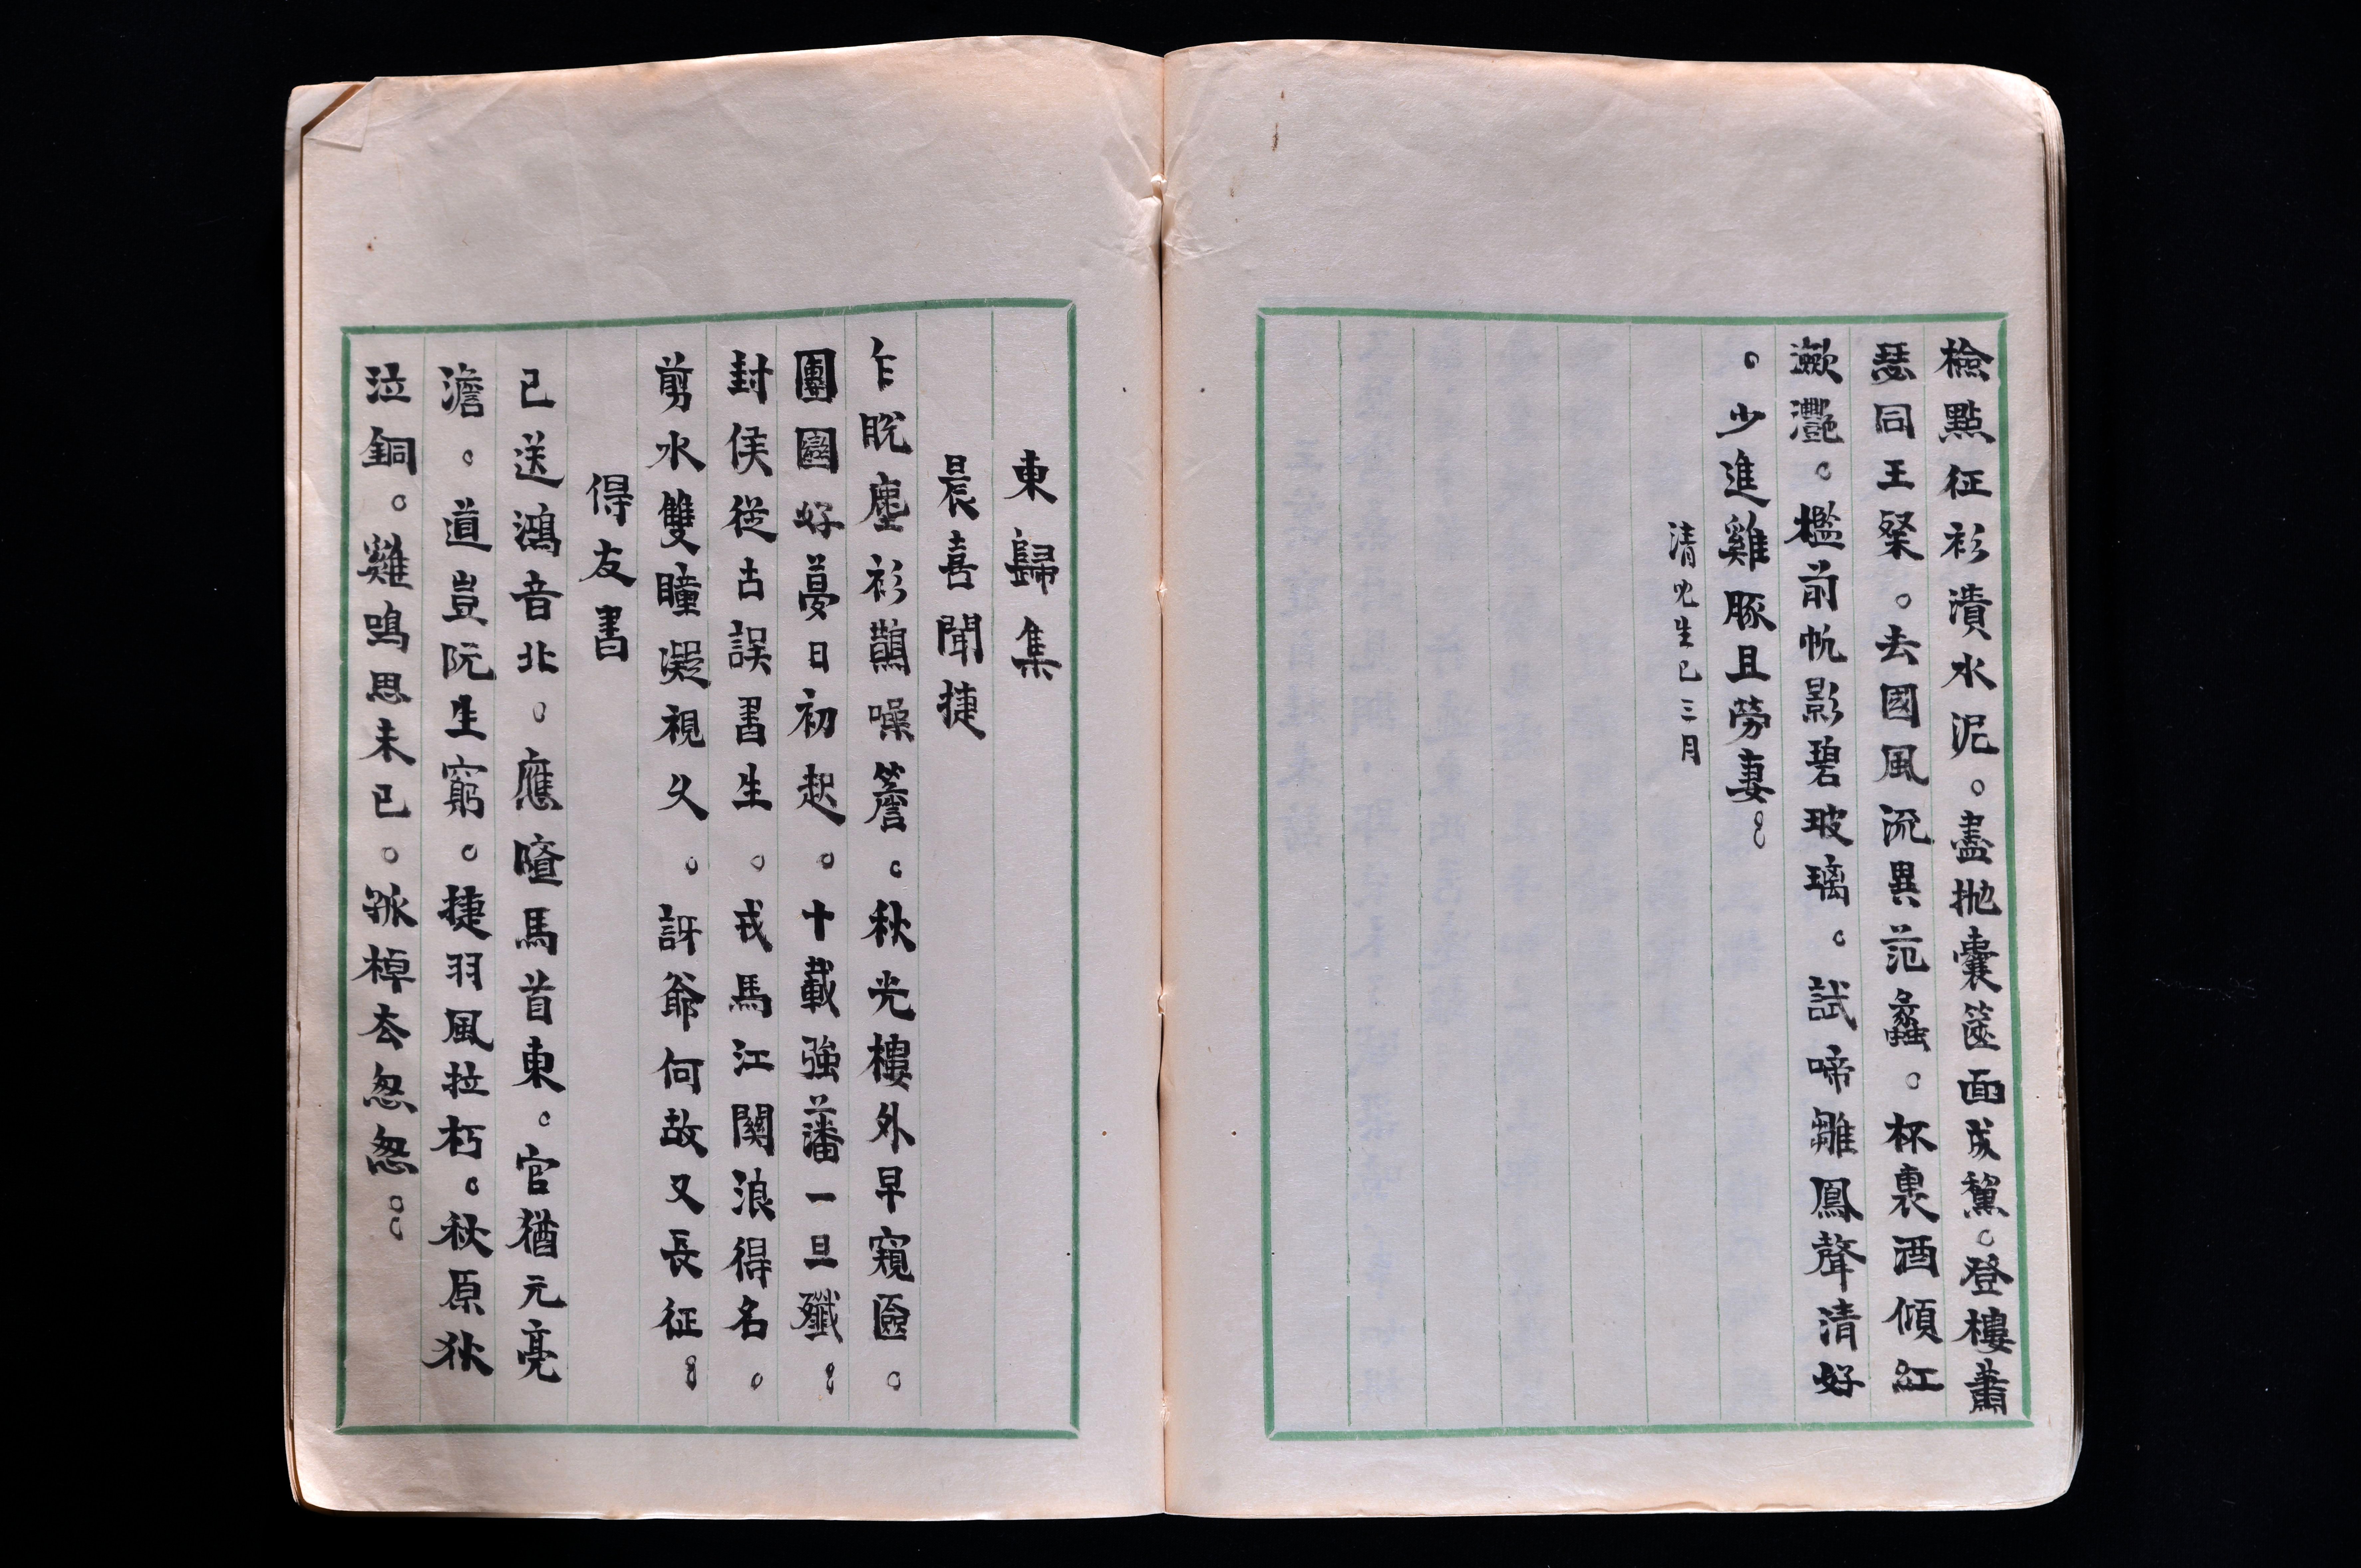 檢點征衫漬水泥。盡拋囊篋面成黧。登樓蕭
瑟同王粲。去國風流異范蠡。杯裏酒傾紅
瀲灩。檻前帆影碧玻璃。試啼雛鳳聲清好
。少進雞豚且勞妻。
清兒生已三月
東歸集
晨喜聞捷
乍脫塵衫鵲噪簷。秋光樓外早窺奩。
團圞好夢日初起。十載強藩一旦殲。
封侯從古誤書生。戎馬江關浪得名。
剪水雙瞳凝視父。訝爺何故又長征。
得友書
已送鴻音北。應瞻馬首東。官猶元亮
澹。道豈阮生窮。捷羽風拉朽。秋原狄
泣銅。雞鳴思未已。孤棹去怱怱。